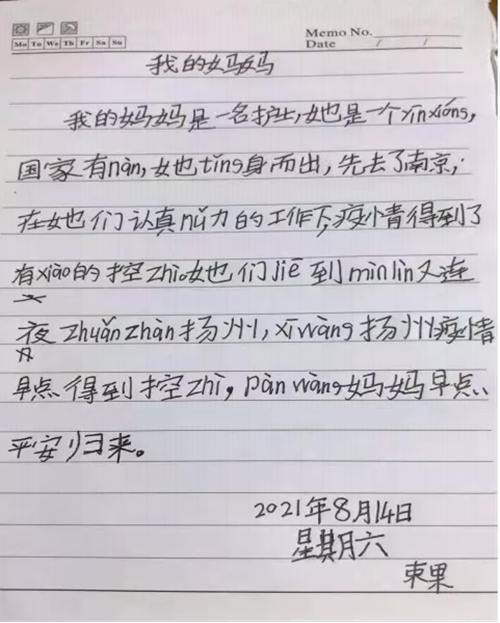 Memo No.
Mo Tu We Th Fr Sa Su
Date / /
我的妈妈
我的妈妈是一名护士,她也是一个yīnxióng,
国家有nàn,她tǐng身而出,先去了南京,
在她们认真nǔ力的工作下,疫情得到了
有xiào的控zhì。她们jiē到mìnlìn又连
夜zhuǎnzhàn扬州,xīwàng扬州疫情
早点得到控zhì,pànwàng妈妈早点
平安归来。
2021年8月14日
星期六
束果